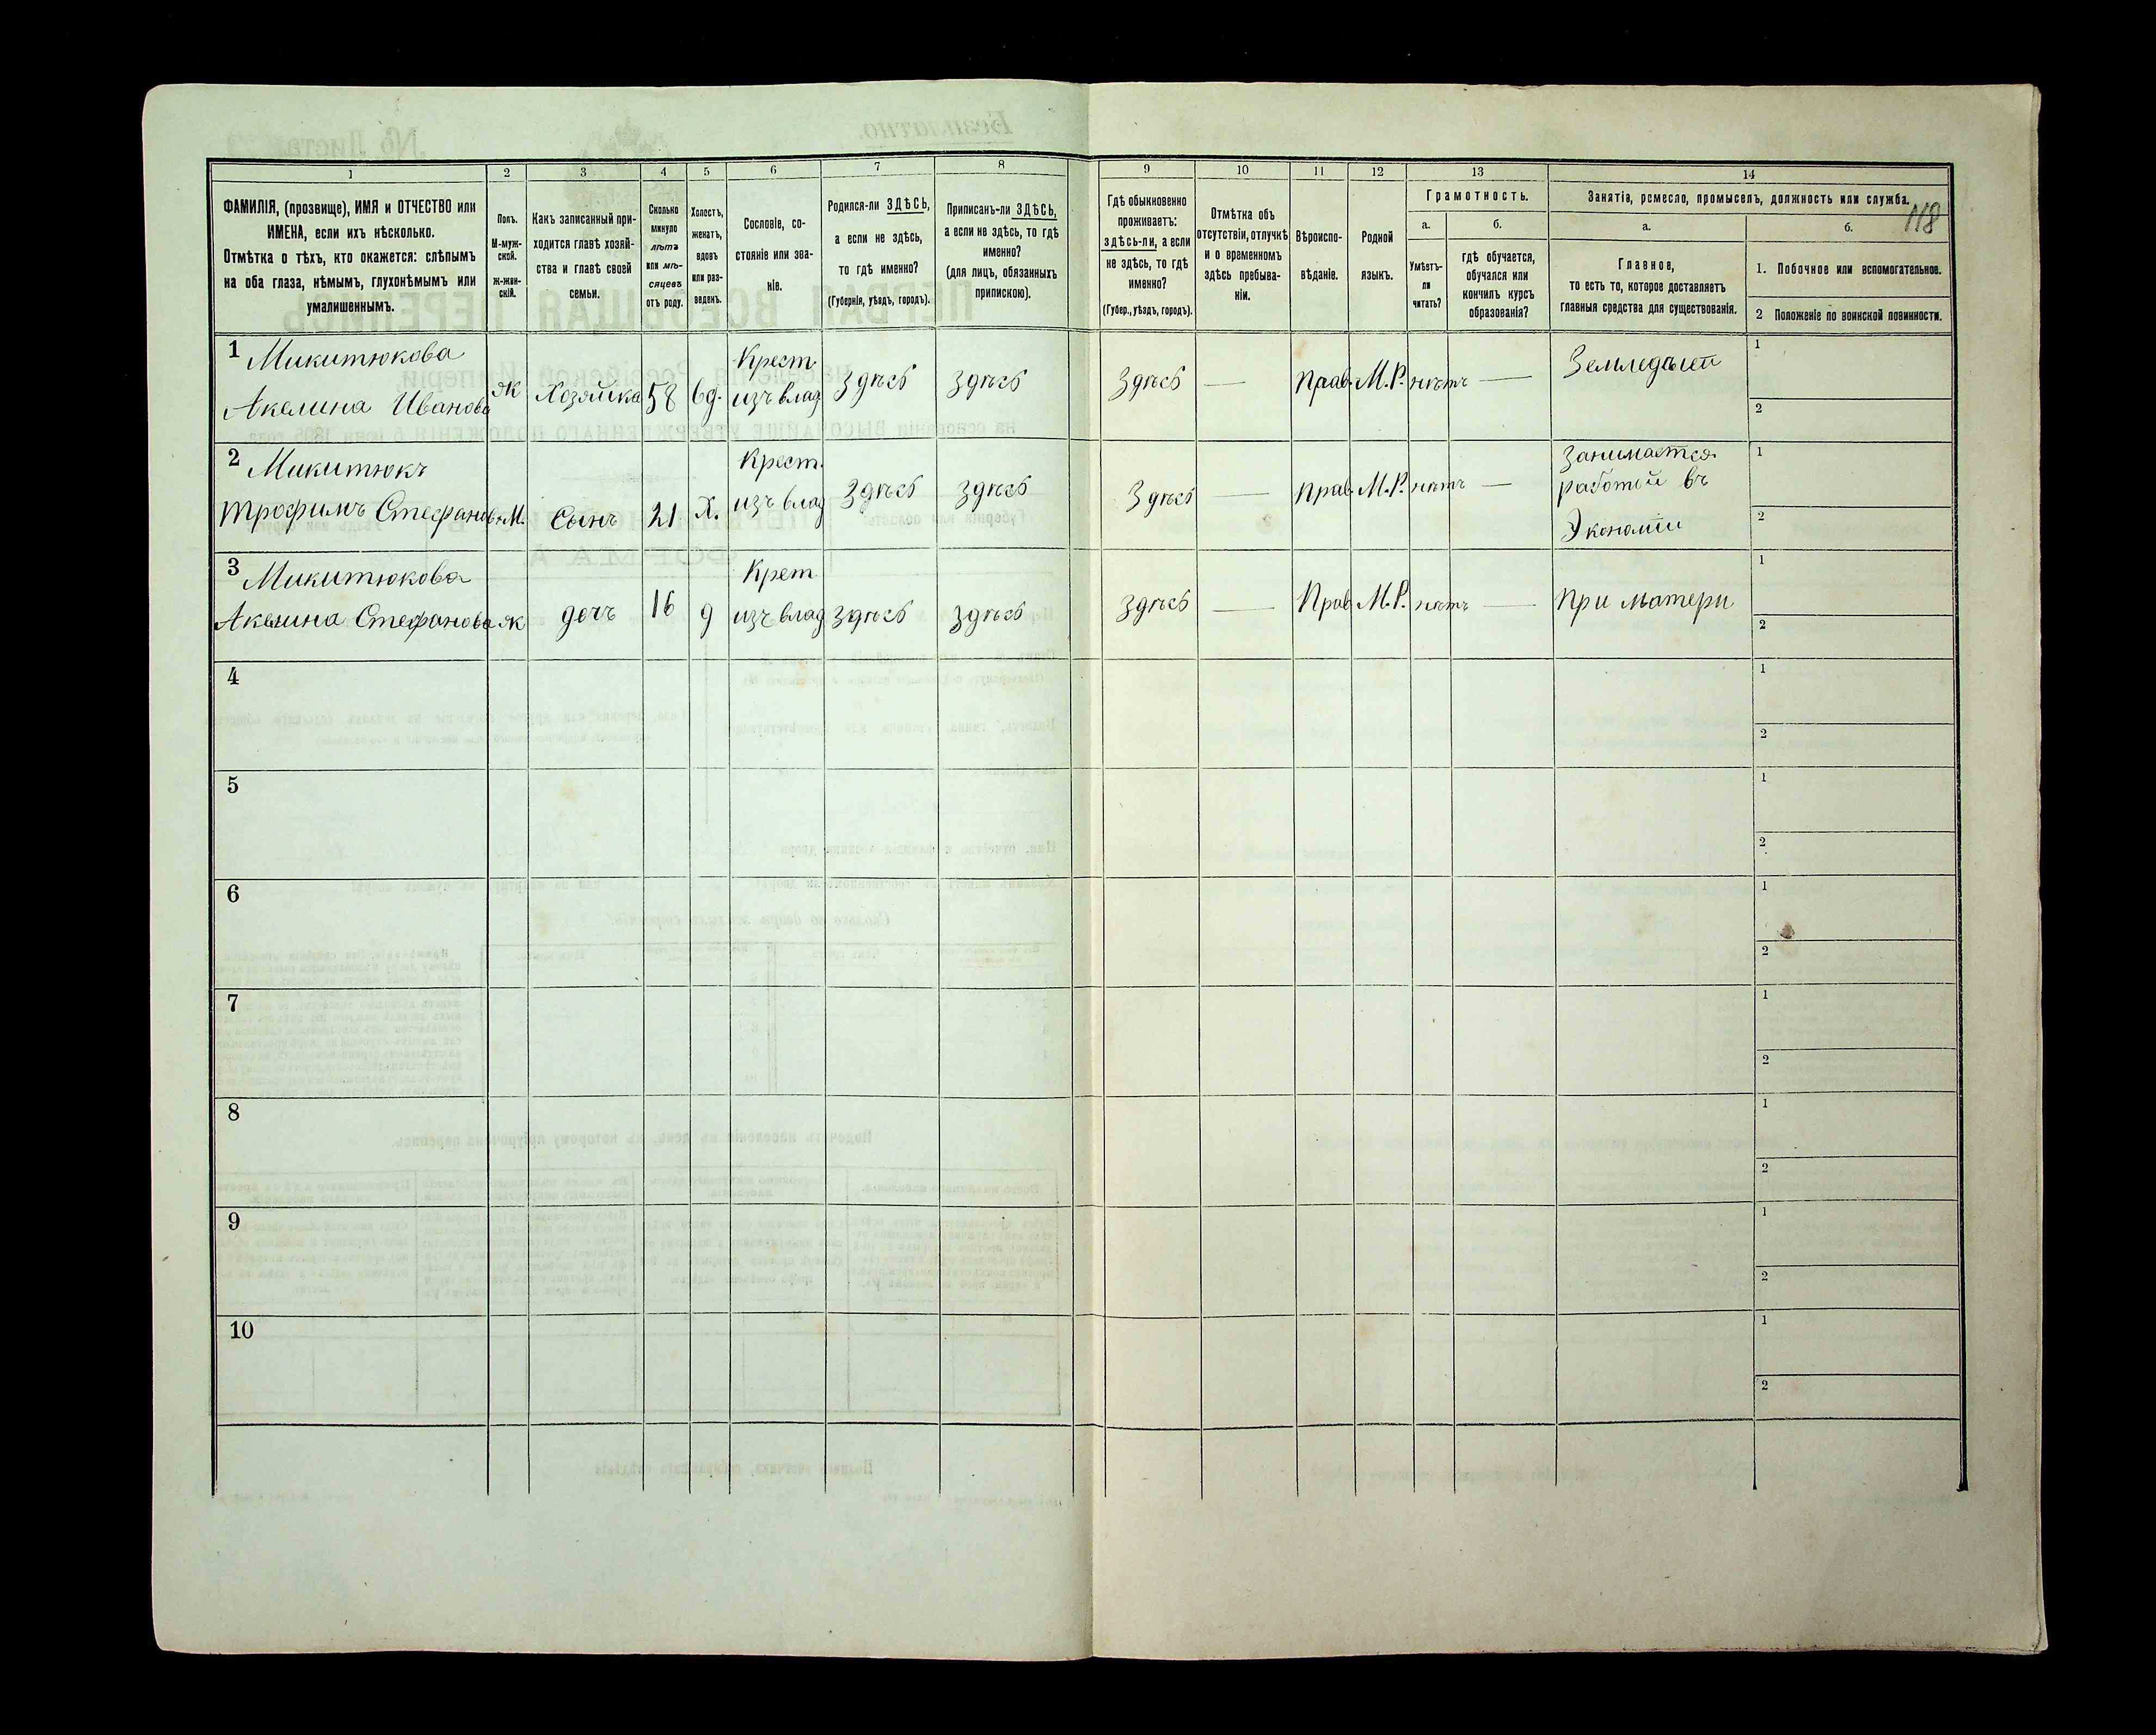 1
2
3
4
5
6
7
8
9
10
11
12
13
14
ФАМИЛІЯ, (прозвище), ИМЯ и ОТЧЕСТВО или
ИМЕНА, если ихъ нѣсколько.
Отмѣтка о тѣхъ, кто окажется: слѣпымъ
на оба глаза, нѣмымъ, глухонѣмымъ или
умалишеннымъ.
Полъ.
М-муж-
ской.
ж-жен-
скій.
Какъ записанный при-
ходится главѣ хозяй-
ства и главѣ своей
семьи.
Сколько
минуло
лѣтъ
или мѣ-
сяцевъ
отъ роду.
Холостъ,
женатъ,
вдовъ
или раз-
веденъ.
Сословіе, со-
стояніе или зва-
ніе.
Родился-ли ЗДѢСЬ,
а если не здѣсь,
то гдѣ именно?
(Губернія, уѣздъ, городъ).
Приписанъ-ли ЗДѢСЬ,
а если не здѣсь, то гдѣ
именно?
(для лицъ, обязанныхъ
припискою).
Гдѣ обыкновенно
проживаетъ:
здѣсь-ли, а если
не здѣсь, то гдѣ
именно?
(Губер., уѣздъ, городъ).
Отмѣтка объ
отсутствіи, отлучкѣ
и о временномъ
здѣсь пребыва-
ніи.
Вѣроиспо-
вѣданіе.
Родной
языкъ.
Грамотность.
а.
Умѣетъ-
ли
читать?
б.
гдѣ обучается,
обучался или
кончилъ курсъ
образованія?
Занятія, ремесло, промыселъ, должность или служба.
118
а.
Главное,
то есть то, которое доставляетъ
главныя средства для существованія.
б.
1. Побочное или вспомогательное.
2 Положеніе по воинской повинности.
1 Микитюкова
Акелина Иванова
Ж
Хозяйка
58
вд.
Крест
изъ влад
здѣсь
здѣсь
здѣсь
—
прав.
М.Р.
нѣтъ
—
Земледѣлей
1
2
2 Микитюкъ
Трофимъ Стефановъ
М.
Сынъ
21
Х.
Крест.
изъ влад
здѣсь
здѣсь
здѣсь
—
прав.
М.Р.
нѣтъ
—
занимается
работой въ
Экономіи
1
2
3 Микитюкова
Акелина Стефанова
Ж
дочь
16
д
Крет
изъ влад
здѣсь
здѣсь
здѣсь
—
Прав.
М.Р.
нѣтъ
—
При матери
1
2
4
1
2
5
1
2
6
1
2
7
1
2
8
1
2
9
1
2
10
1
2